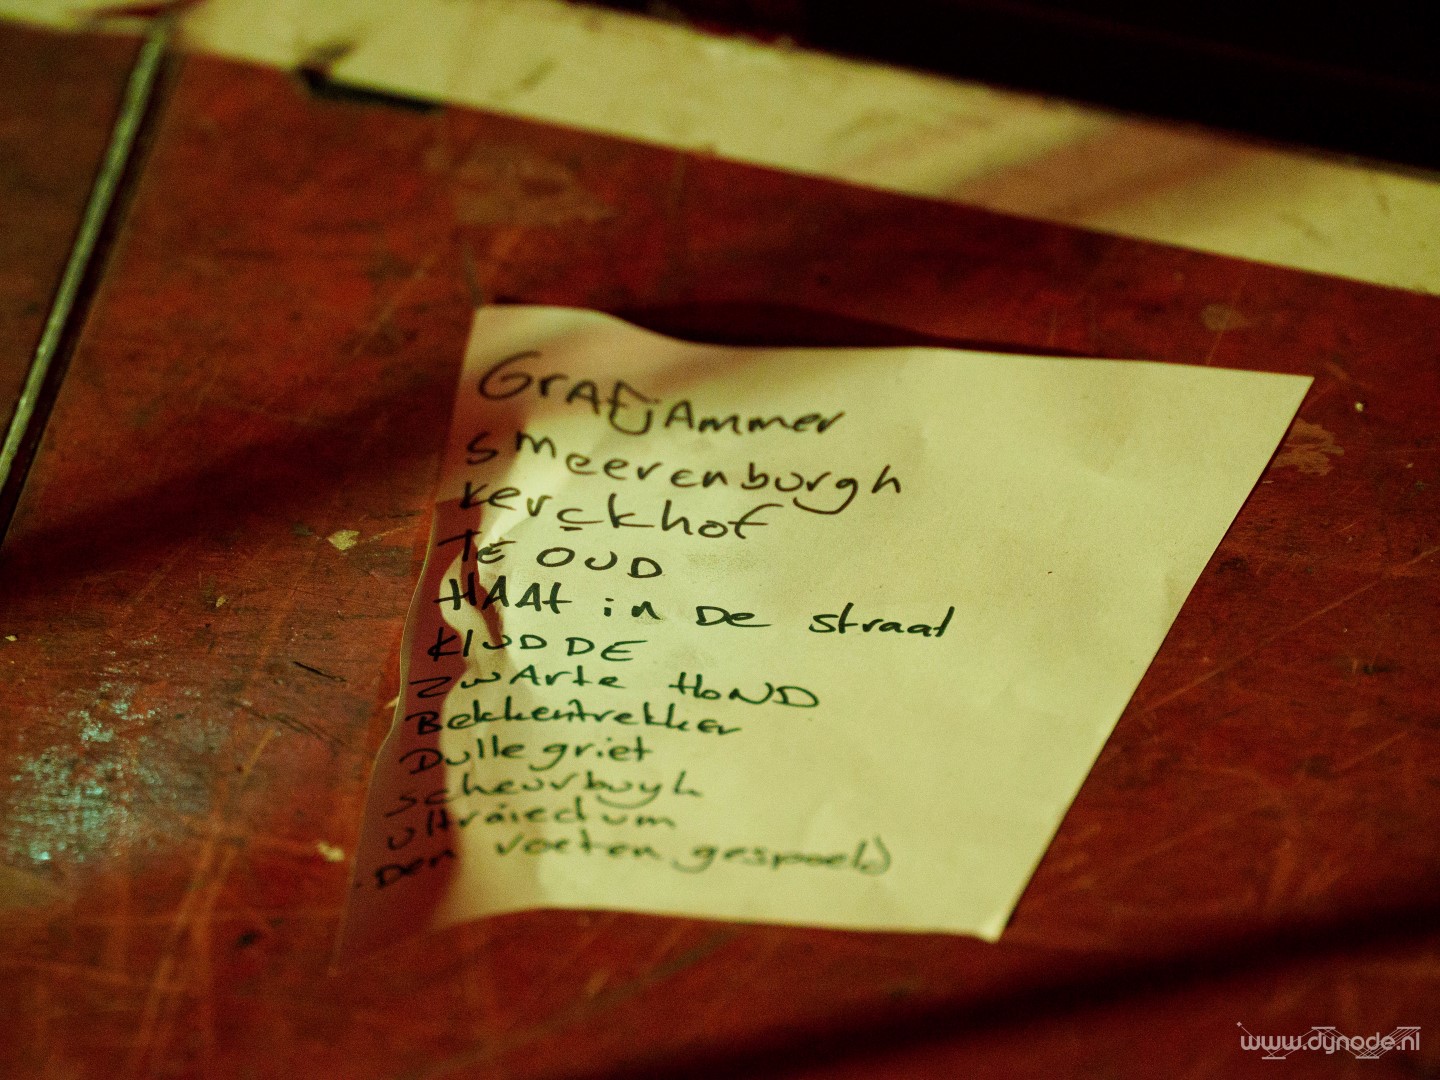 GrAfjAmmer
smeerenburgh
kerckhof
TE OUD
HAAt in De straat
KlUDDE
ZwArte HoND
Bekkentrekker
Dulle griet
scheurbuyk
ultraiectum
Den voeten gespoeld
www.dynode.nl